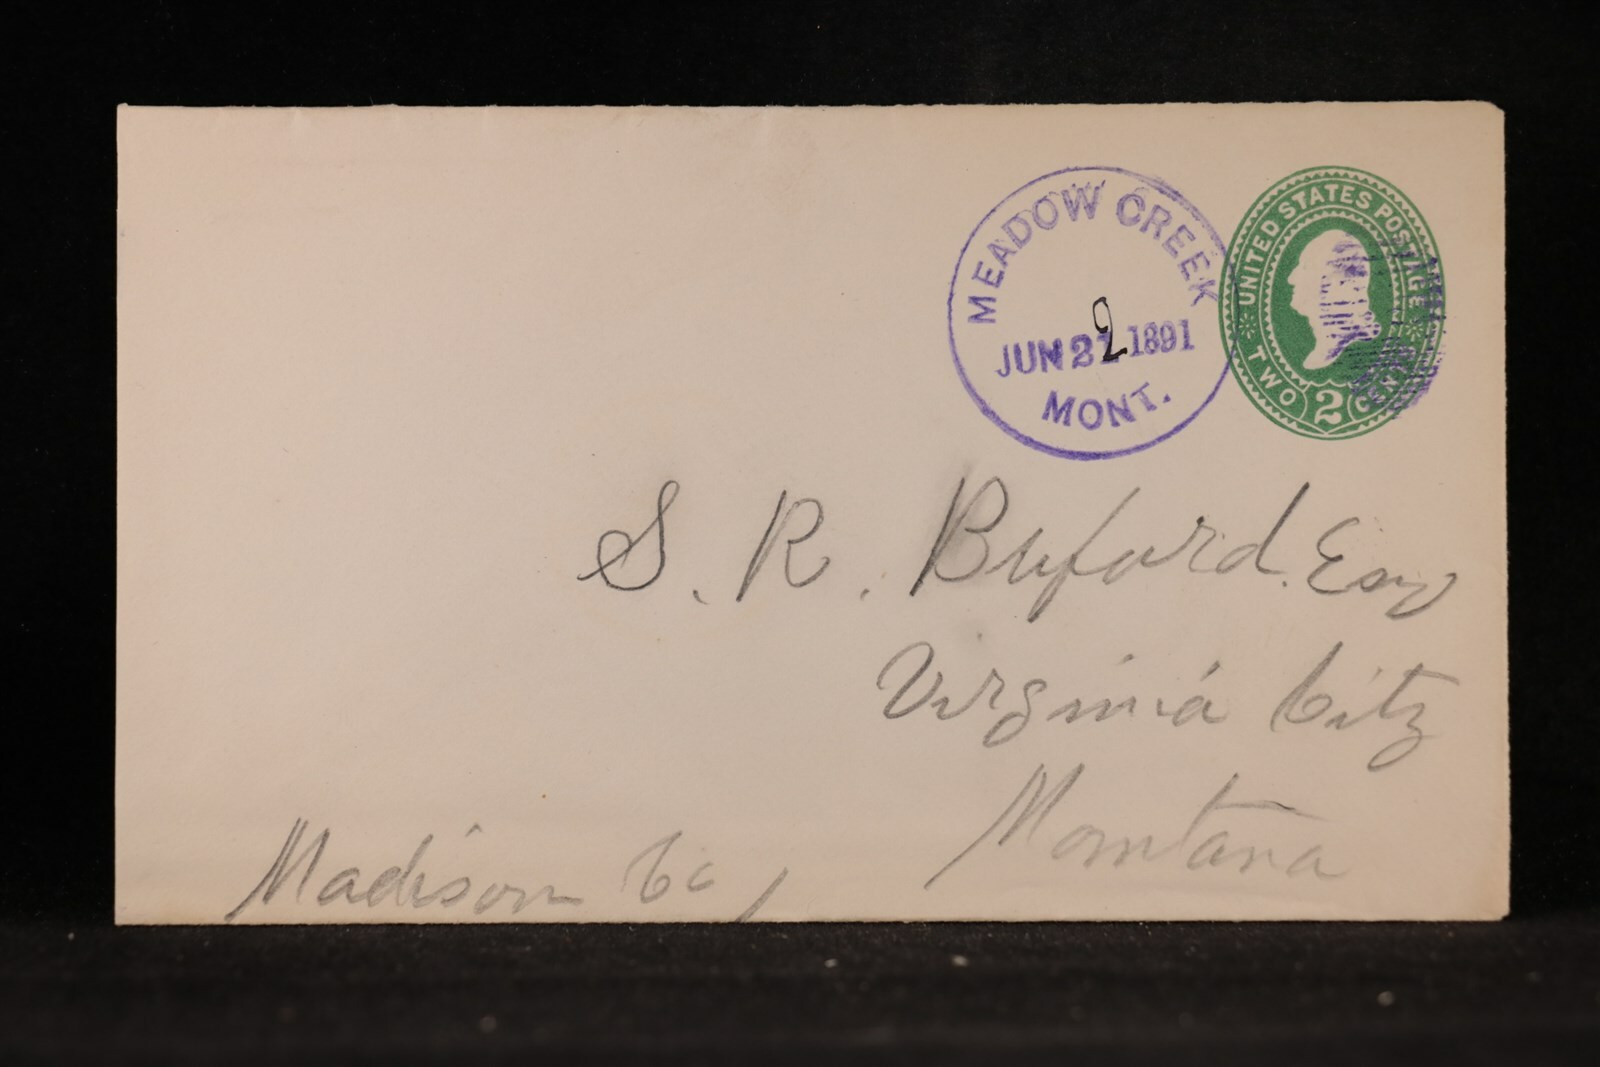 MEADOW CREEK
JUN 22 1891
MONT.
UNITED STATES POSTAGE
TWO 2 CENTS
S. R. Buford. Esq
Virginia City
Montana
Madison Co,